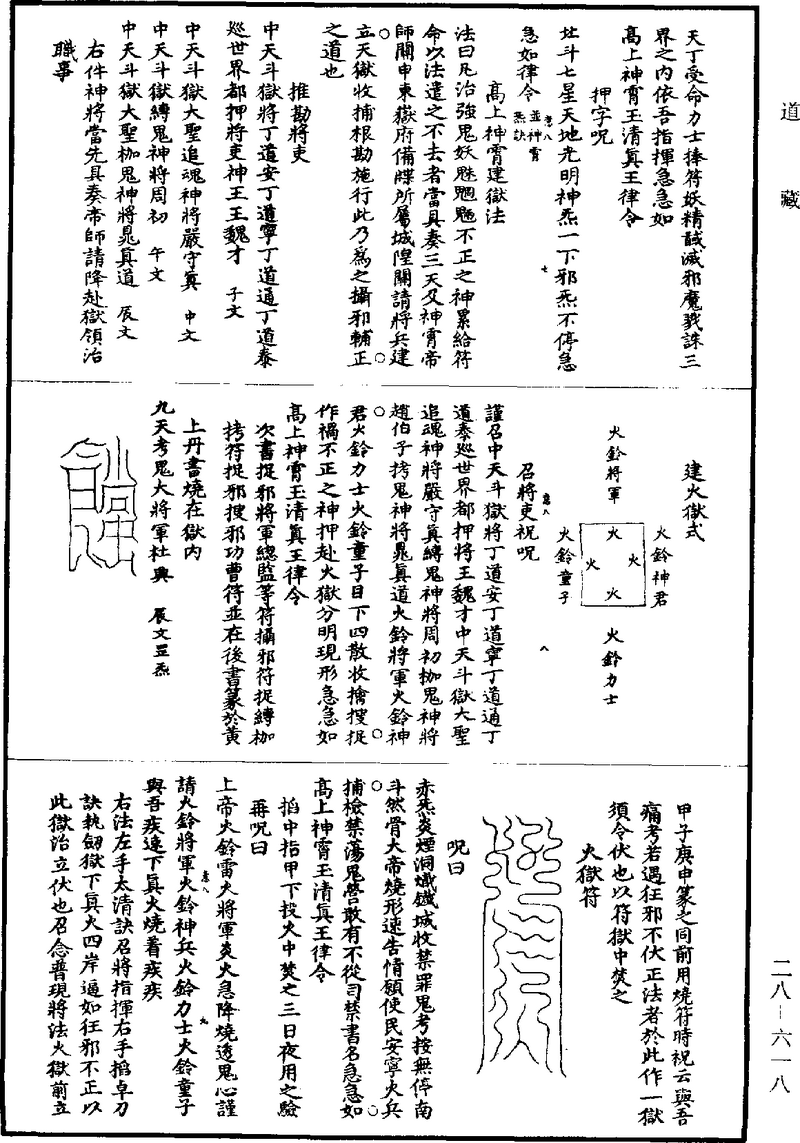 道藏
天丁受命力士捧符妖精馘滅邪魔戮誅三
界之内依吾指揮急急如
高上神霄玉清眞王律令
押字呪
北斗七星天地光明神炁一下邪炁不停急
急如律令 並神霄炁訣
高上神霄建獄法
法曰凡治強鬼妖魅魍魎不正之神累給符
命以法遣之不去者當具奏三天及神霄帝
師關申東嶽府備牒所屬城隍關請將兵建
立天獄收捕根勘施行此乃爲之攝邪輔正
之道也
推勘將吏
中天斗獄將丁道安丁道寧丁道通丁道泰
巡世界都押將吏神王王魏才 子文
中天斗獄大聖追魂神將嚴守眞 申文
中天斗獄縛鬼神將周初 午文
中天斗獄大聖枷鬼神將晁眞道 辰文
右件神將當先具奏帝師請降赴獄領治
職事
建火獄式
火鈴神君
火鈴將軍 火 火 火 火 火鈴力士
火鈴童子
召將吏祝呪
謹召中天斗獄將丁道安丁道寧丁道通丁
道泰巡世界都押將王魏才中天斗獄大聖
追魂神將嚴守眞縛鬼神將周初枷鬼神將
趙伯子拷鬼神將晁眞道火鈴將軍火鈴神
君火鈴力士火鈴童子目下四散收擒搜捉
作禍不正之神押赴火獄分明現形急急如
高上神霄玉清眞王律令
次書捉邪將軍總監等符攝邪符捉縛枷
拷符捉邪搜邪功曹符並在後書篆於黄
上丹書燒在獄内
九天考鬼大將軍杜興 辰文罡炁
甲子庚申篆之同前用燒符時祝云與吾
痛考若遇狂邪不伏正法者於此作一獄
須令伏也以符獄中焚之
火獄符
呪曰
赤炁炎煙洞熾鐵城收禁罪鬼考按無停南
斗然骨大帝燒形速告情願使民安寧火兵
捕檢禁蕩鬼營敢有不從司禁書名急急如
高上神霄玉清眞王律令
掐中指甲下投火中焚之三日夜用之驗
再呪曰
上帝火鈴雷火將軍炎火急降燒透鬼心謹
請火鈴將軍火鈴神兵火鈴力士火鈴童子
與吾疾速下眞火燒着疾疾
右法左手太清訣召將指揮右手掐卓刀
訣執劍獄下眞火四岸逼如狂邪不正以
此獄治立伏也召念普現將法火獄前立
二八—六一八